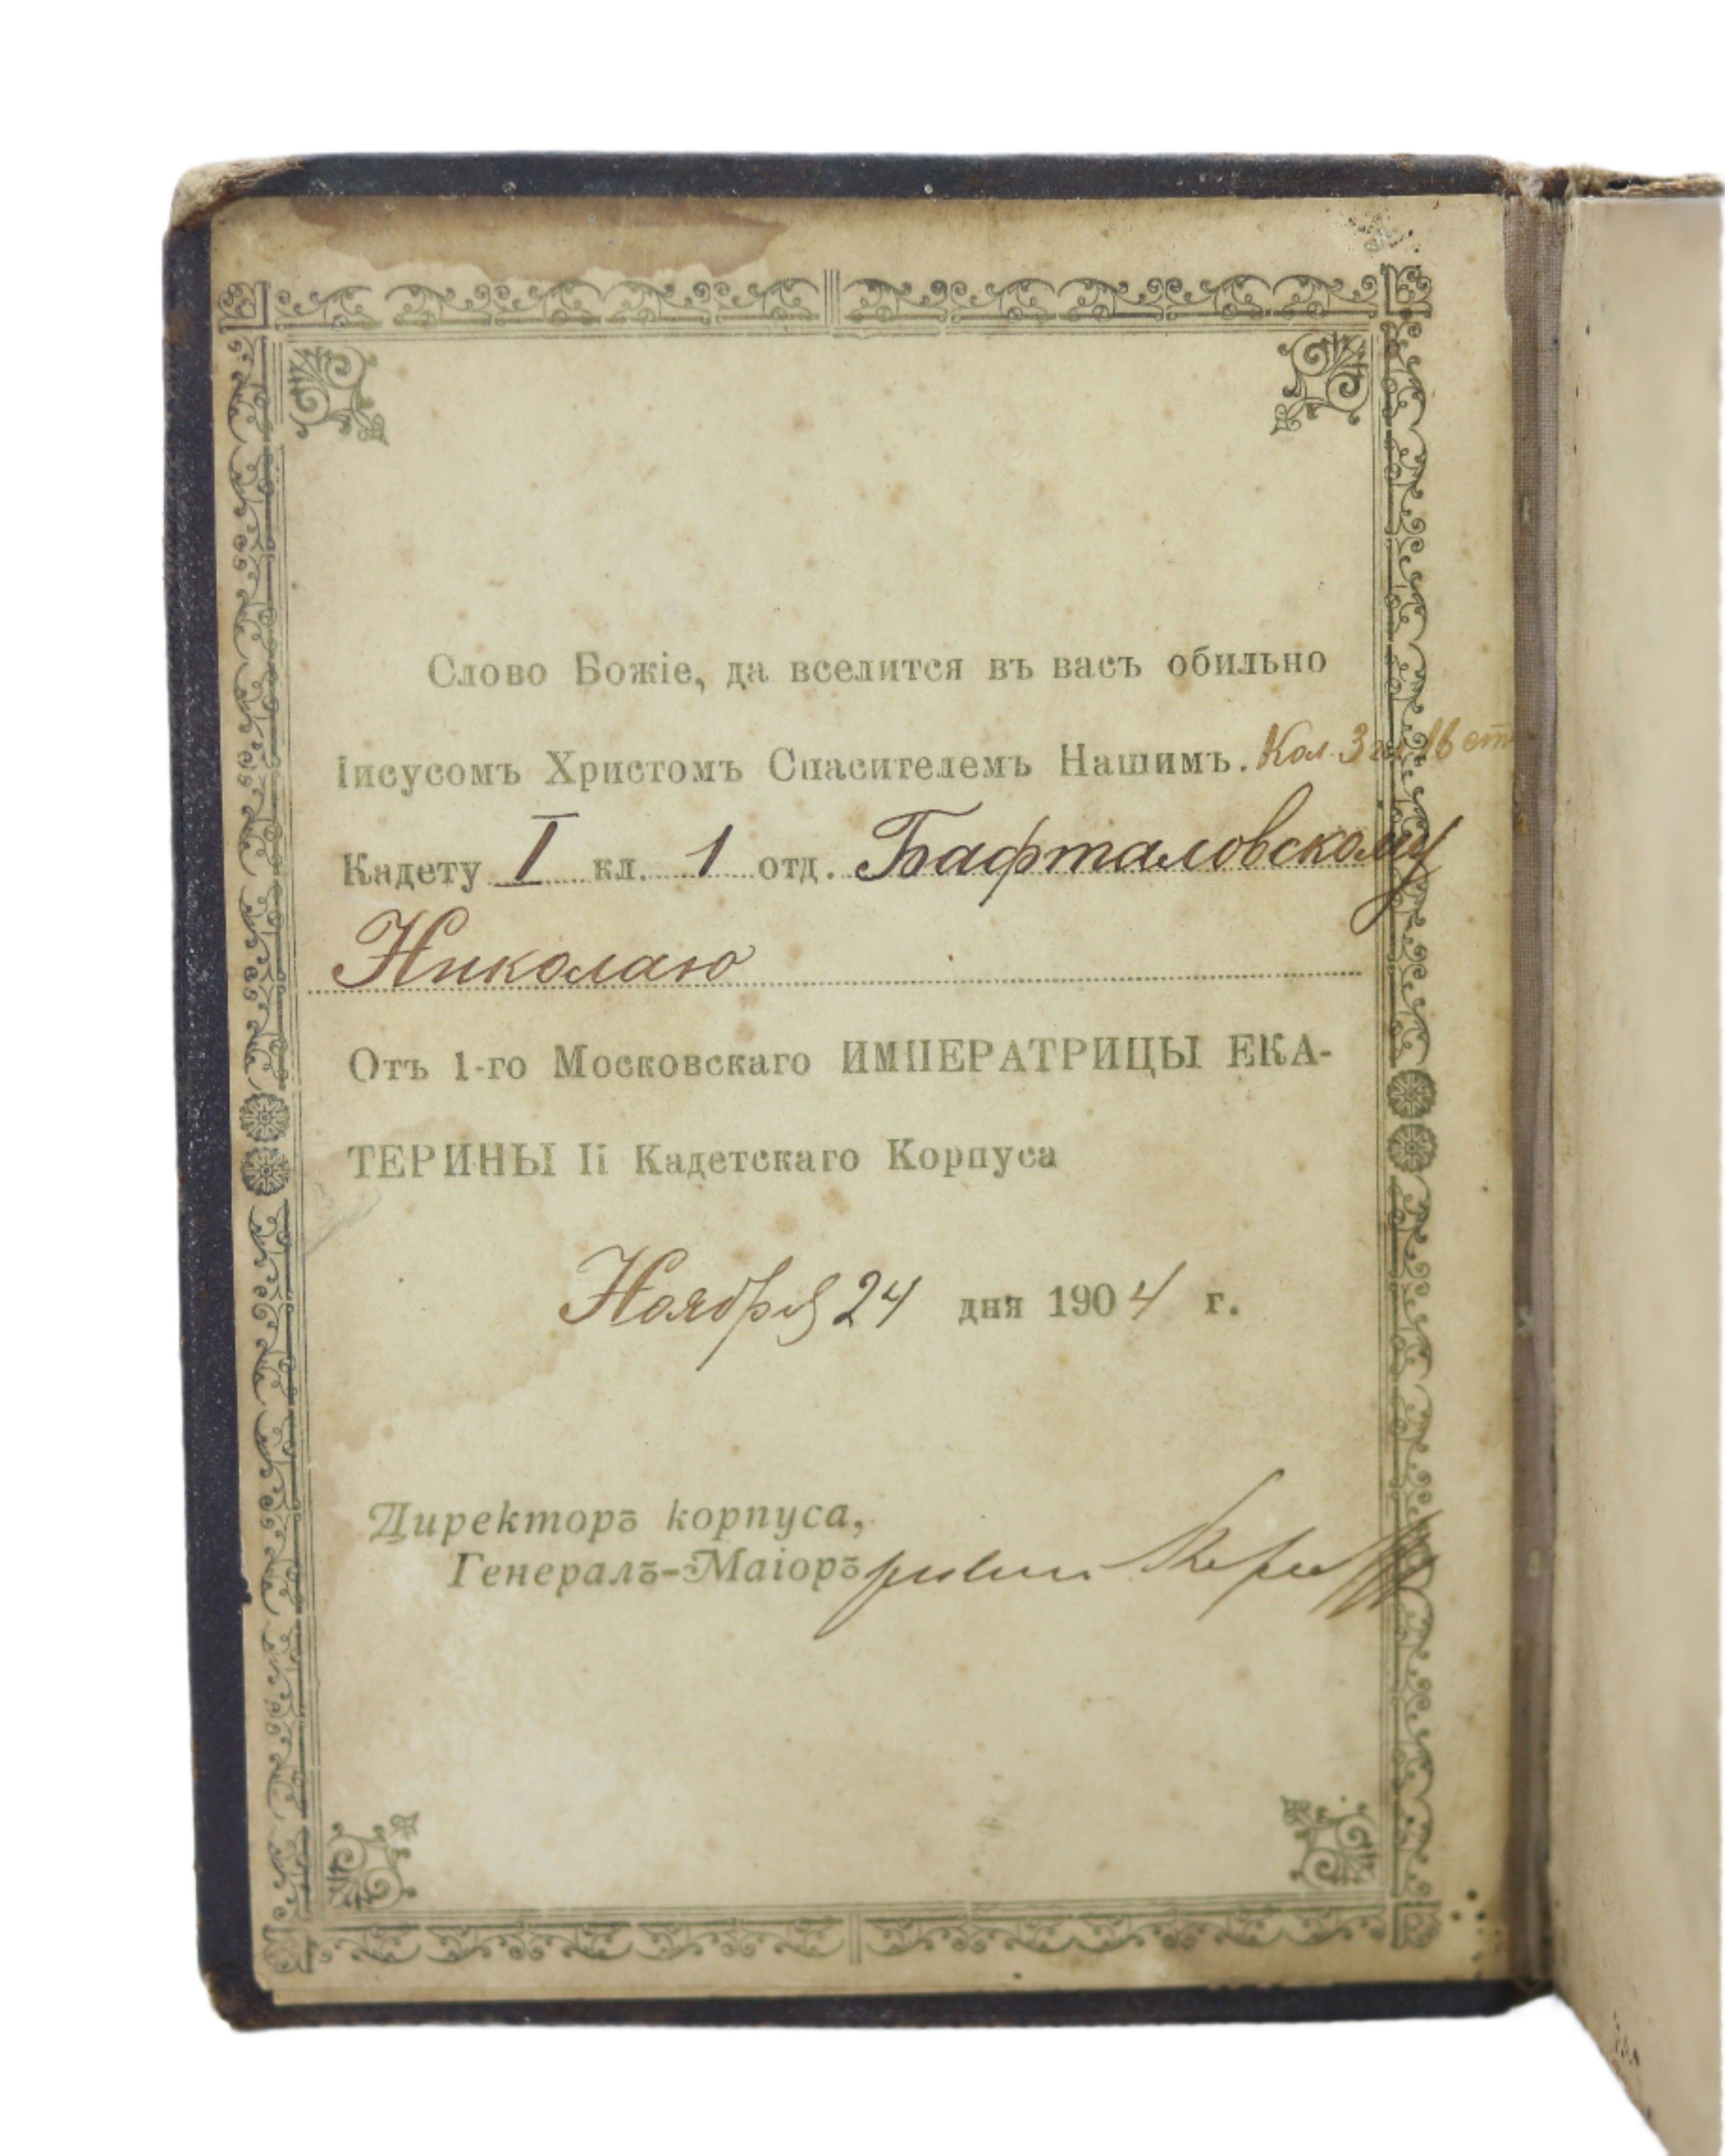 Слово Божіе, да вселится въ васъ обильно
Іисусомъ Христомъ Спасителемъ Нашимъ. Кол. 3 гл. 16 ст.
Кадету I кл. 1 отд. Бафталовскому
Николаю
Отъ 1-го Московскаго ИМПЕРАТРИЦЫ ЕКА-
ТЕРИНЫ II Кадетскаго Корпуса
Ноября 24 дня 1904 г.
Директоръ корпуса,
Генералъ-Маіоръ